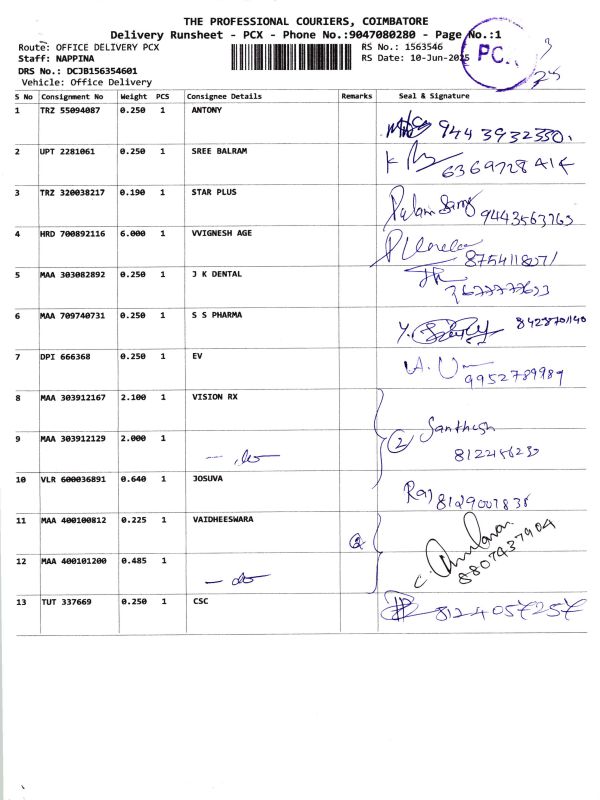 THE PROFESSIONAL COURIERS, COIMBATORE
Delivery Runsheet - PCX - Phone No.:9047080280 - Page No.:1
Route: OFFICE DELIVERY PCX
RS No.: 1563546
Staff: NAPPINA
RS Date: 10-Jun-2025
DRS No.: DCJB156354601
Vehicle: Office Delivery
PC
S No Consignment No Weight PCS Consignee Details Remarks Seal & Signature
1 TRZ 55094087 0.250 1 ANTONY
9443932330.
2 UPT 2281061 0.250 1 SREE BALRAM
6369728414
3 TRZ 320038217 0.190 1 STAR PLUS
9443563763
4 HRD 700892116 6.000 1 VVIGNESH AGE
8754118071
5 MAA 303082892 0.250 1 J K DENTAL
6 MAA 709740731 0.250 1 S S PHARMA
8428701140
7 DPI 666368 0.250 1 EV
9952789989
8 MAA 303912167 2.100 1 VISION RX
2 Santhosh
9 MAA 303912129 2.000 1
— do —
10 VLR 600036891 0.640 1 JOSUVA
Raj 8129007836
11 MAA 400100812 0.225 1 VAIDHEESWARA
2
8807437904
12 MAA 400101200 0.485 1
— do —
13 TUT 337669 0.250 1 CSC
8124057257